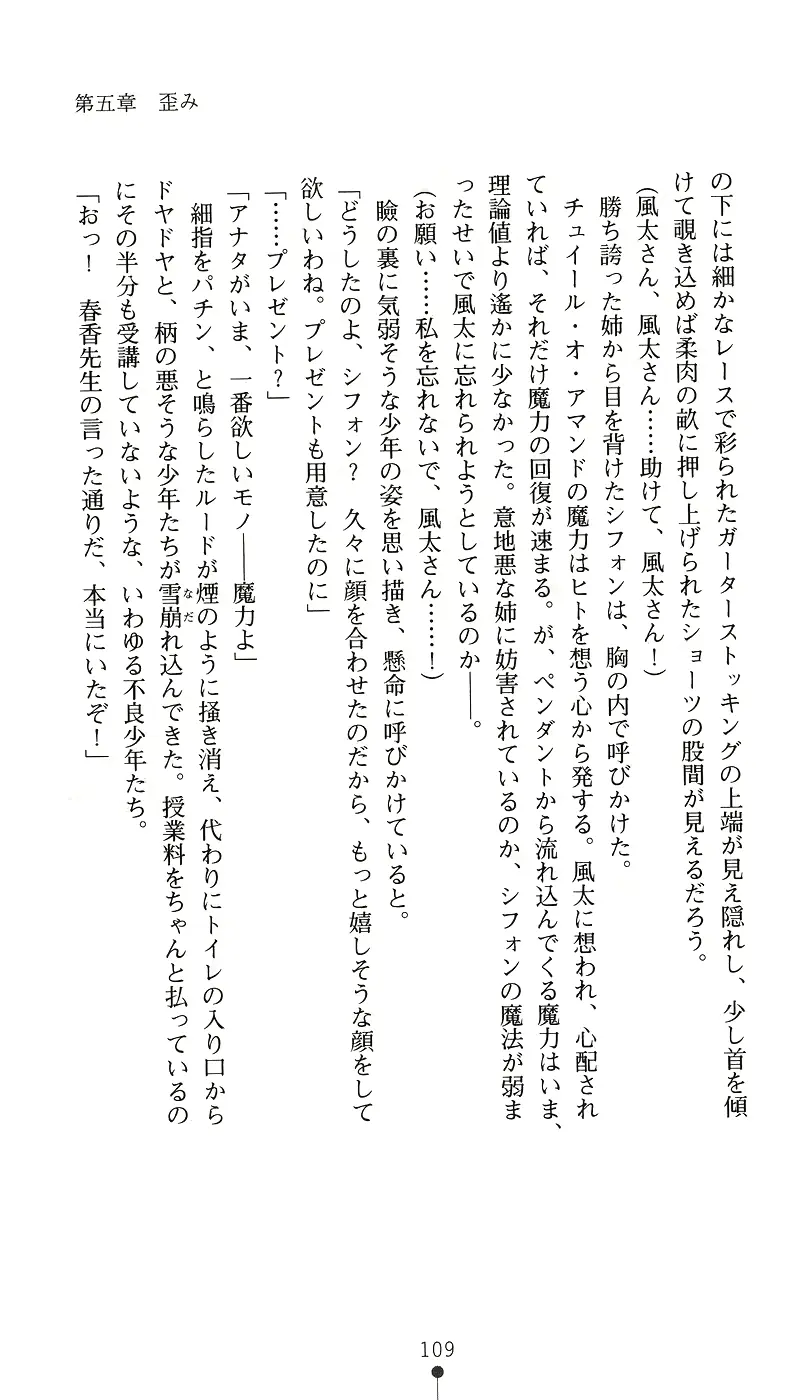 第五章　歪み
の下には細かなレースで彩られたガーターストッキングの上端が見え隠れし、少し首を傾
けて覗き込めば柔肉の畝に押し上げられたショーツの股間が見えるだろう。
(風太さん、風太さん……助けて、風太さん！)
　勝ち誇った姉から目を背けたシフォンは、胸の内で呼びかけた。
　チュイール・オ・アマンドの魔力はヒトを想う心から発する。風太に想われ、心配され
ていれば、それだけ魔力の回復が速まる。が、ペンダントから流れ込んでくる魔力はいま、
理論値より遙かに少なかった。意地悪な姉に妨害されているのか、シフォンの魔法が弱ま
ったせいで風太に忘れられようとしているのか――。
(お願い……私を忘れないで、風太さん……！)
　瞼の裏に気弱そうな少年の姿を思い描き、懸命に呼びかけていると。
「どうしたのよ、シフォン？　久々に顔を合わせたのだから、もっと嬉しそうな顔をして
欲しいわね。プレゼントも用意したのに」
「……プレゼント？」
「アナタがいま、一番欲しいモノ――魔力よ」
　細指をパチン、と鳴らしたルードが煙のように掻き消え、代わりにトイレの入り口から
ドヤドヤと、柄の悪そうな少年たちが雪崩れ込んできた。授業料をちゃんと払っているの
なだ
にその半分も受講していないような、いわゆる不良少年たち。
「おっ！　春香先生の言った通りだ、本当にいたぞ！」
109